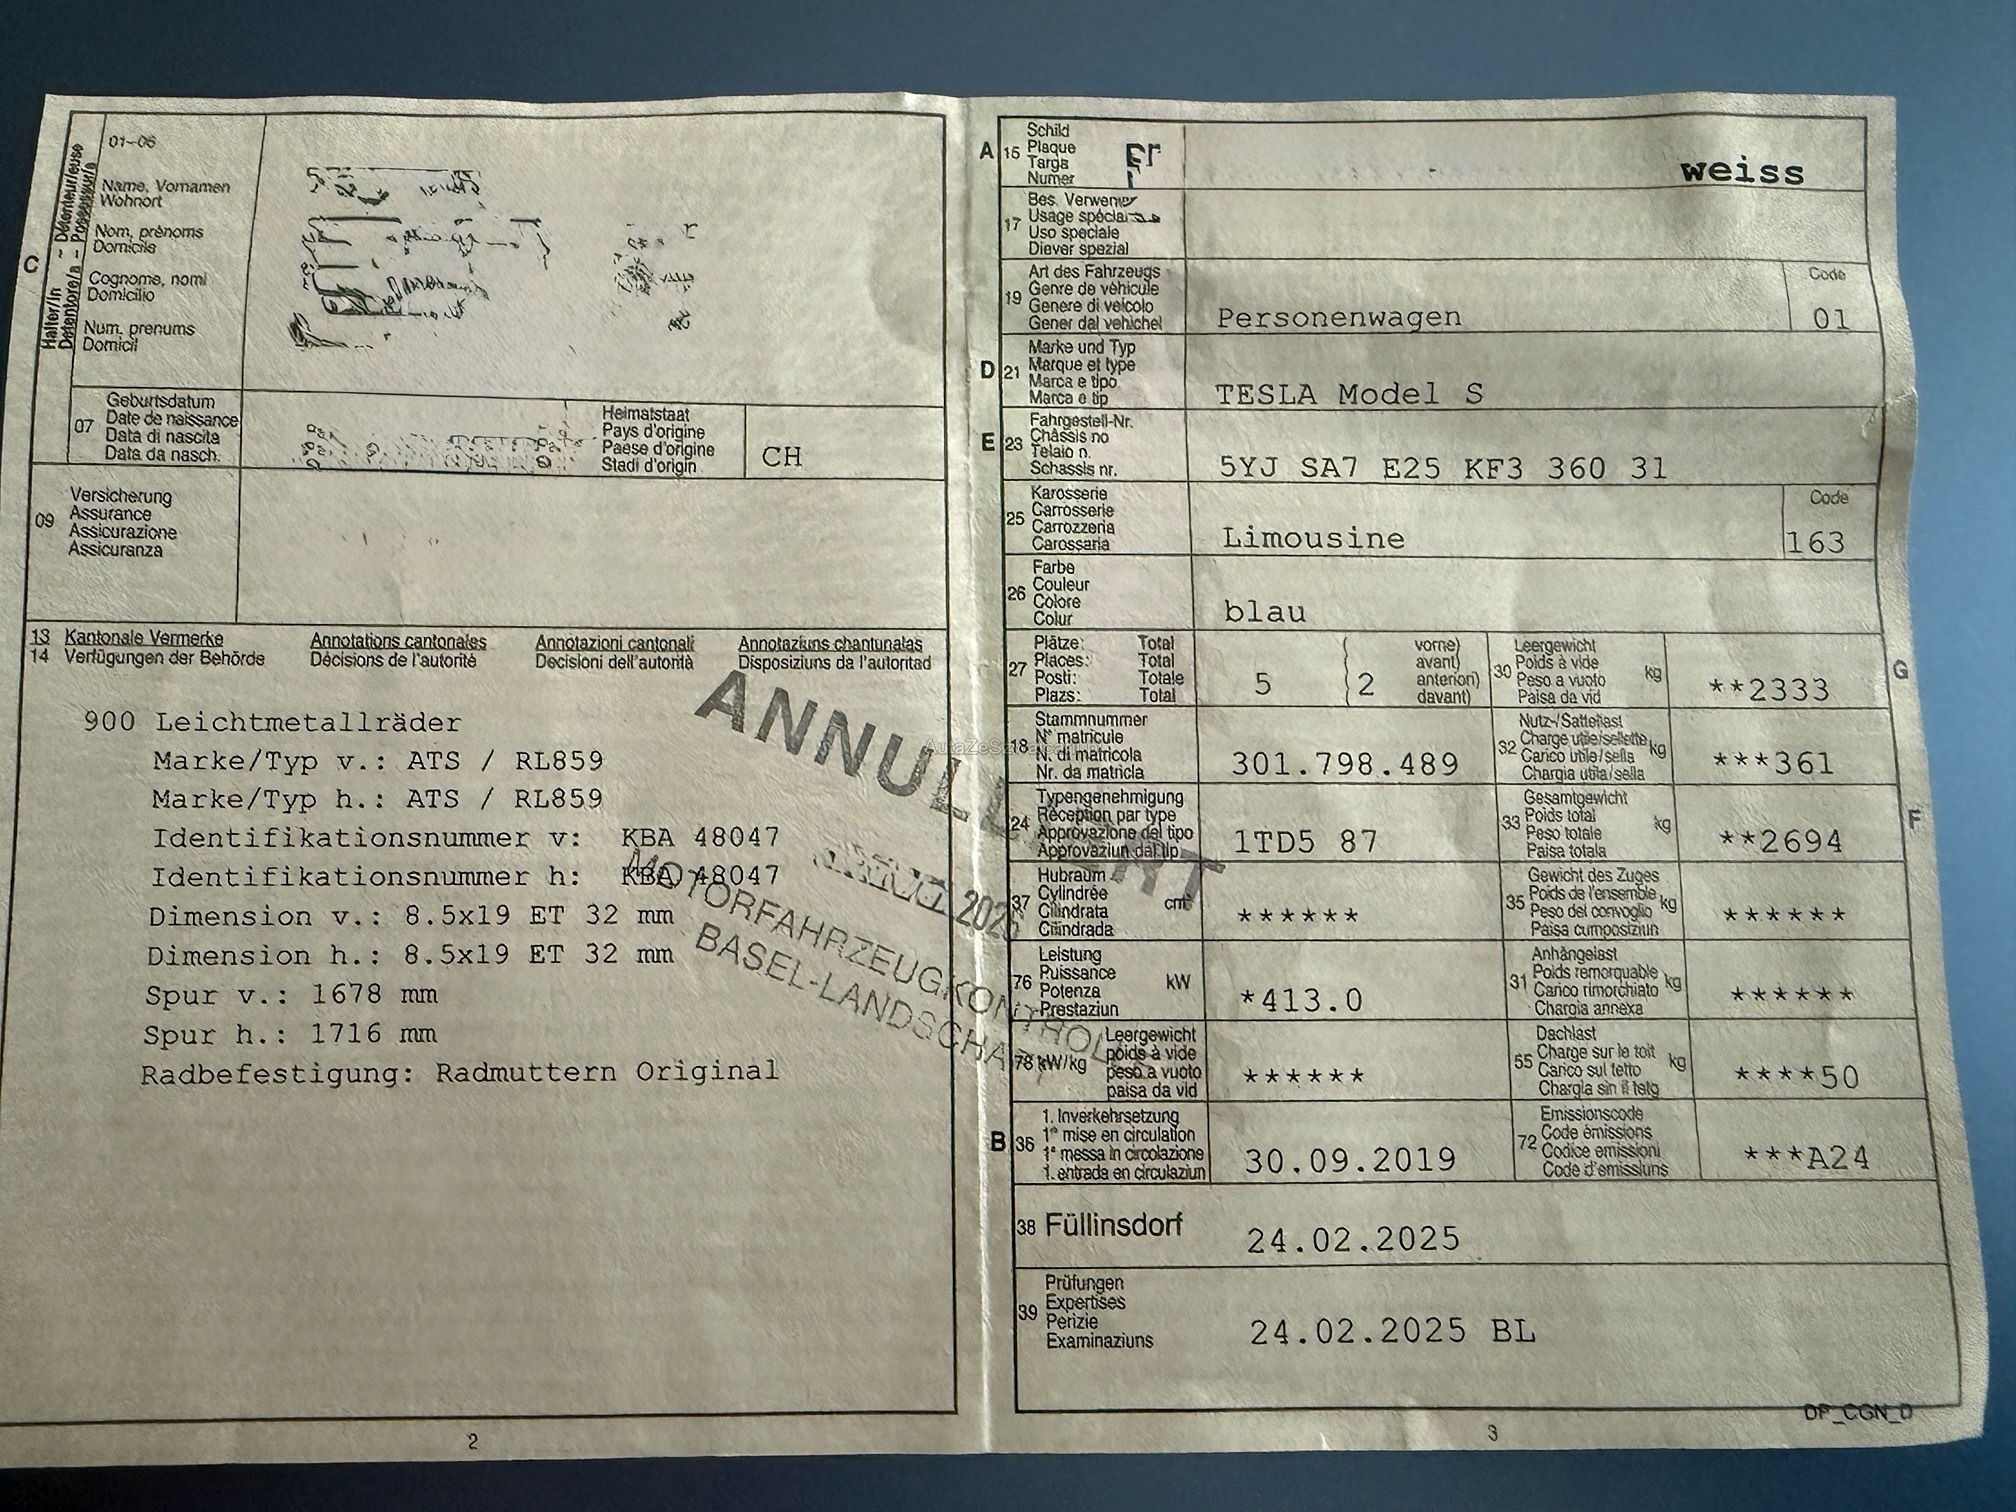 01-06
Halter/in – Détenteur/euse
Detentore/a – Possessur/a
C
Name, Vornamen
Wohnort
Nom, prénoms
Domicile
Cognome, nomi
Domicilio
Num. prenums
Domicil
07
Geburtsdatum
Date de naissance
Data di nascita
Data da nasch.
Heimatstaat
Pays d'origine
Paese d'origine
Stadi d'origin
CH
09
Versicherung
Assurance
Assicurazione
Assicuranza
13 Kantonale Vermerke Annotations cantonales Annotazioni cantonali Annotaziuns chantunalas
14 Verfügungen der Behörde Décisions de l'autorité Decisioni dell'autorità Disposiziuns da l'autoritad
900 Leichtmetallräder
Marke/Typ v.: ATS / RL859
Marke/Typ h.: ATS / RL859
Identifikationsnummer v: KBA 48047
Identifikationsnummer h: KBA 48047
Dimension v.: 8.5x19 ET 32 mm
Dimension h.: 8.5x19 ET 32 mm
Spur v.: 1678 mm
Spur h.: 1716 mm
Radbefestigung: Radmuttern Original
ANNULLIERT
2025
MOTORFAHRZEUGKONTROLLE
BASEL-LANDSCHAFT
2
A 15
Schild
Plaque
Targa
Numer
weiss
17
Bes. Verwend
Usage spécial
Uso speciale
Diever spezial
19
Art des Fahrzeugs
Genre de véhicule
Genere di veicolo
Gener dal vehichel
Personenwagen
Code
01
D 21
Marke und Typ
Marque et type
Marca e tipo
Marca e tip
TESLA Model S
E 23
Fahrgestell-Nr.
Châssis no
Telaio n.
Schassis nr.
5YJ SA7 E25 KF3 360 31
25
Karosserie
Carrosserie
Carrozzeria
Carossaria
Limousine
Code
163
26
Farbe
Couleur
Colore
Colur
blau
27
Plätze: Total
Places: Total
Posti: Totale
Plazs: Total
5 ( 2
vorne)
avant)
anteriori)
davant)
G
30
Leergewicht
Poids à vide
Peso a vuoto
Paisa da vid
kg
**2333
18
Stammnummer
N° matricule
N. di matricola
Nr. da matricla
301.798.489
32
Nutz-/Sattellast
Charge utile/sellette
Carico utile/sella
Chargia utila/sella
kg
***361
24
Typengenehmigung
Réception par type
Approvazione del tipo
Approvaziun dal tip
1TD5 87
F
33
Gesamtgewicht
Poids total
Peso totale
Paisa totala
kg
**2694
37
Hubraum
Cylindrée
Cilindrata
Cilindrada
cm³
******
35
Gewicht des Zuges
Poids de l'ensemble
Peso del convoglio
Paisa cumposiziun
kg
******
76
Leistung
Puissance
Potenza
Prestaziun
kW
*413.0
31
Anhängelast
Poids remorquable
Carico rimorchiato
Chargia annexa
kg
******
78 kW/kg
Leergewicht
poids à vide
peso a vuoto
paisa da vid
******
55
Dachlast
Charge sur le toit
Carico sul tetto
Chargia sin il tetg
kg
****50
B 36
1. Inverkehrsetzung
1re mise en circulation
1a messa in circolazione
1. entrada en circulaziun
30.09.2019
72
Emissionscode
Code émissions
Codice emissioni
Code d'emissiuns
***A24
38 Füllinsdorf
24.02.2025
39
Prüfungen
Expertises
Perizie
Examinaziuns
24.02.2025 BL
DP_CGN_D
3